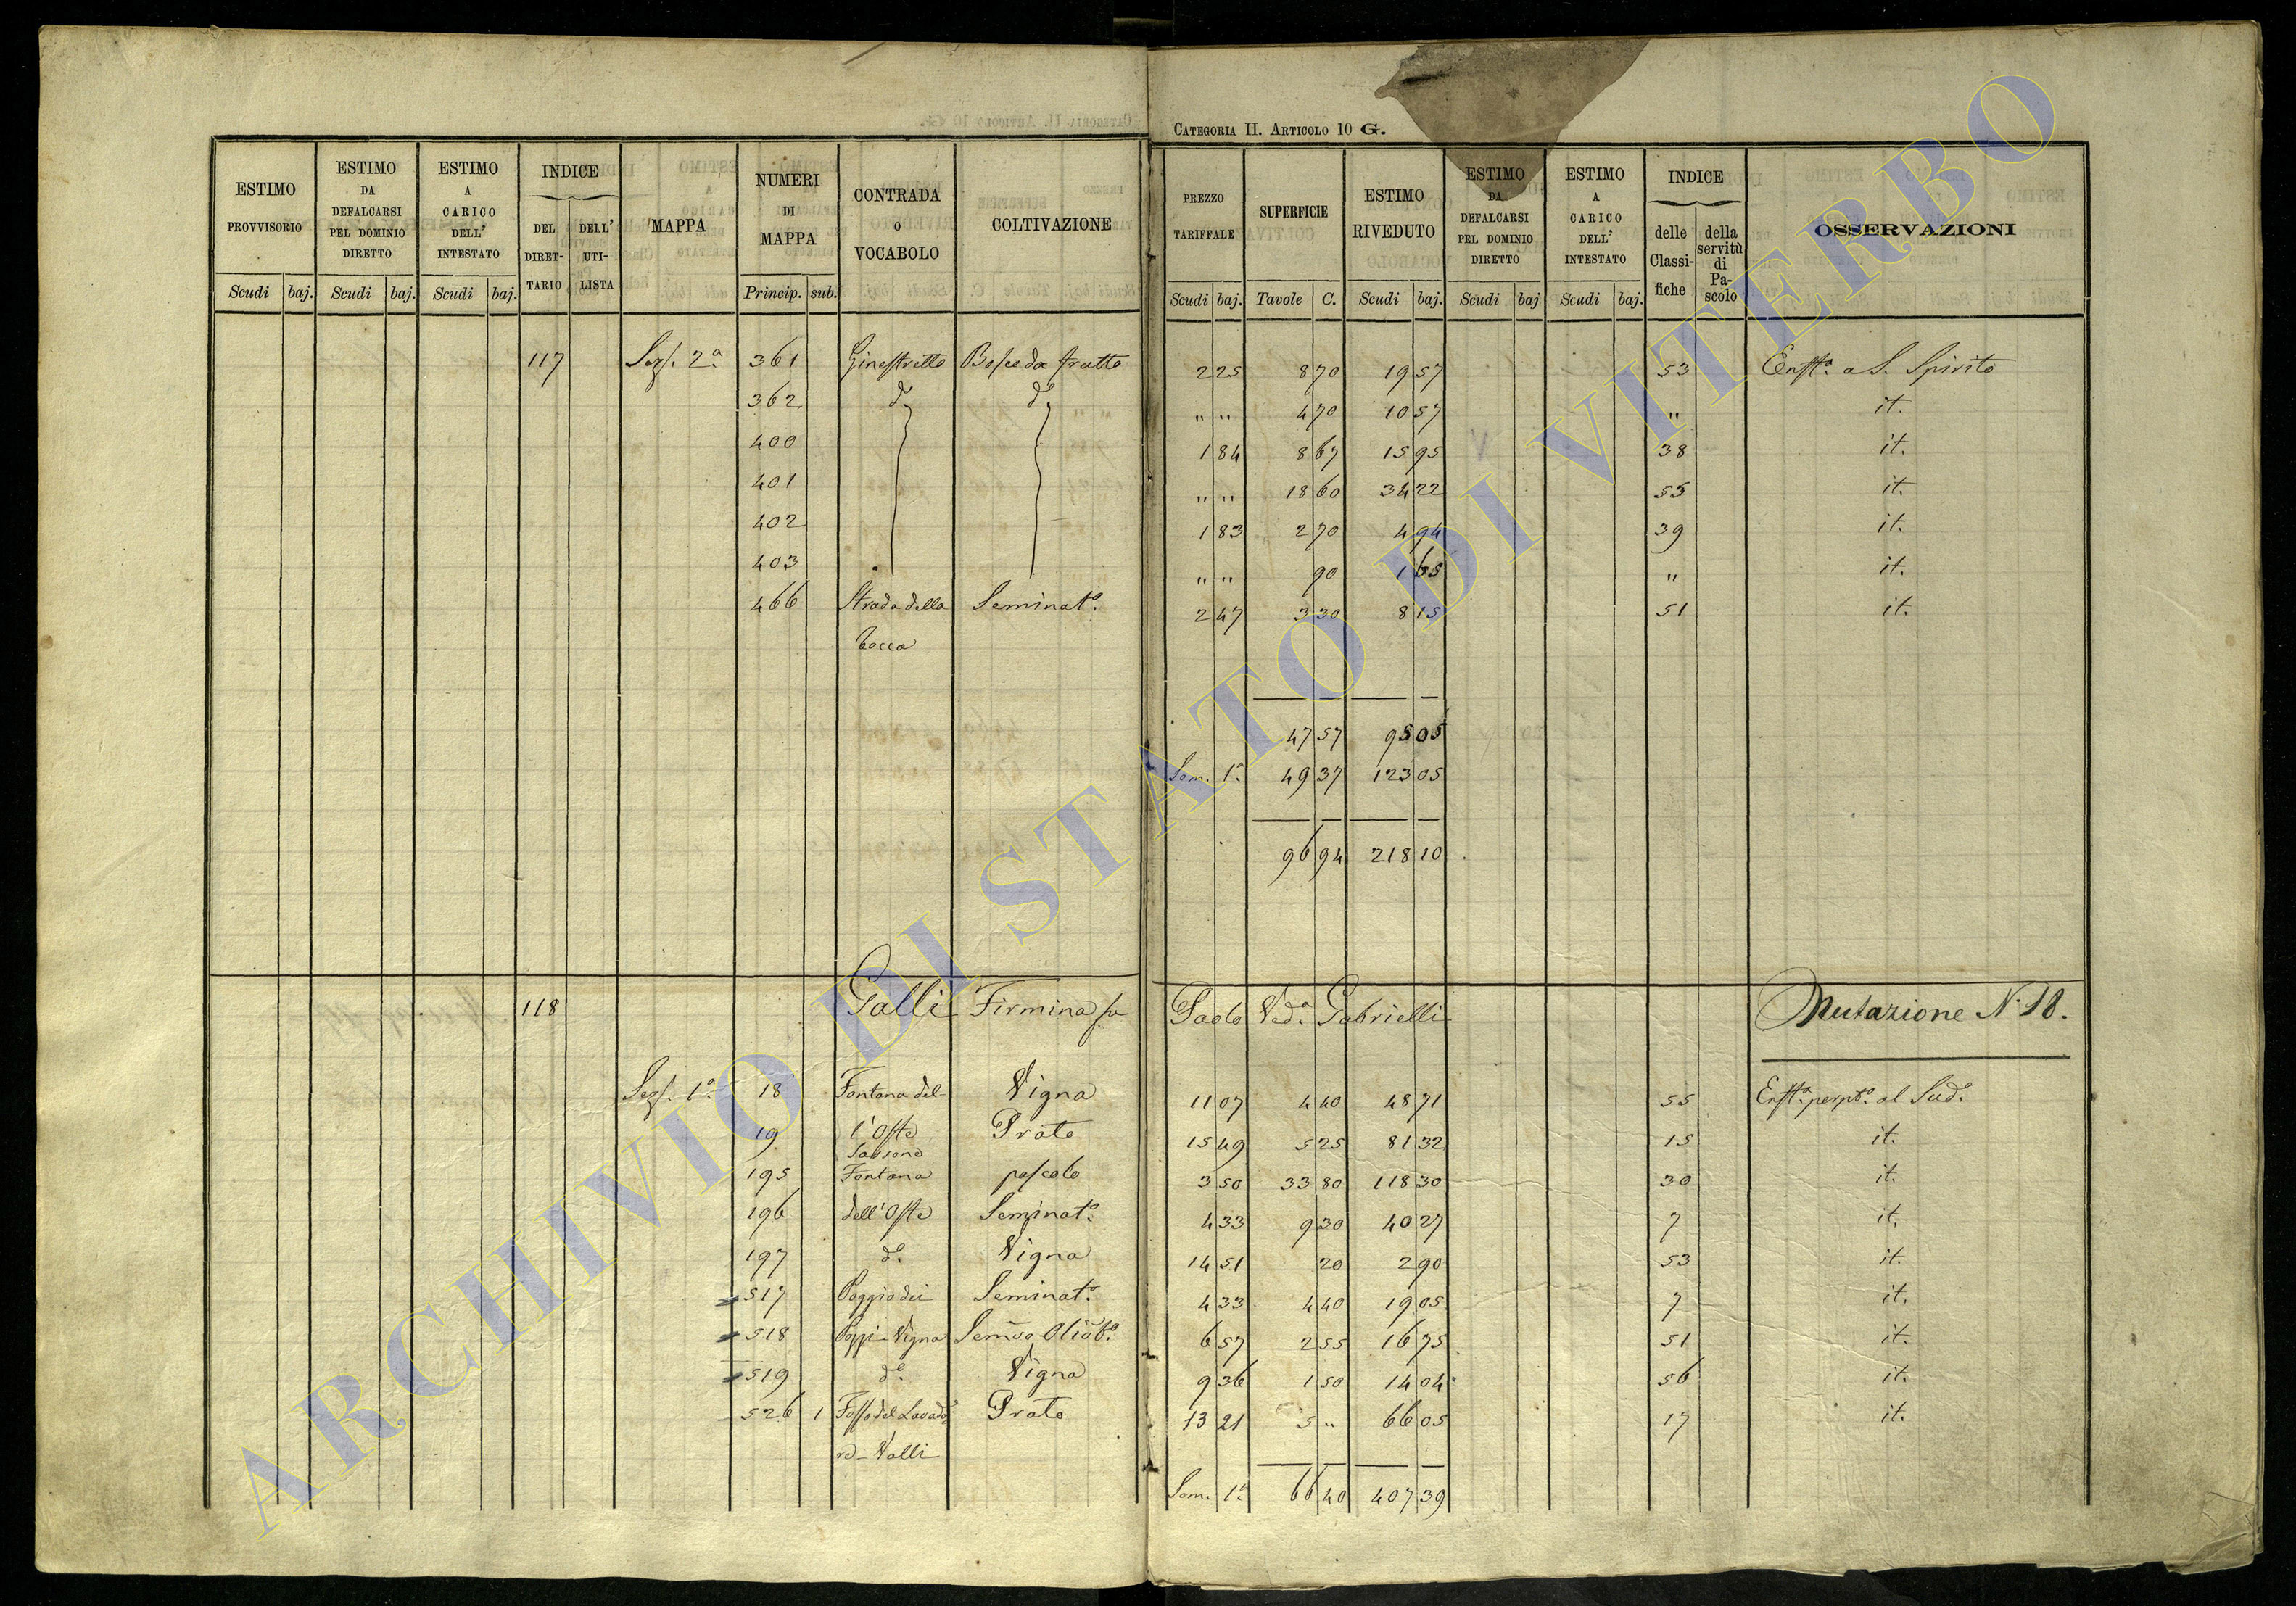 CATEGORIA II. ARTICOLO 10 G.
ESTIMO PROVVISORIO | ESTIMO DA DEFALCARSI PEL DOMINIO DIRETTO | ESTIMO A CARICO DELL' INTESTATO | INDICE | MAPPA | NUMERI DI MAPPA | CONTRADA O VOCABOLO | COLTIVAZIONE | PREZZO TARIFFALE | SUPERFICIE | ESTIMO RIVEDUTO | ESTIMO DA DEFALCARSI PEL DOMINIO DIRETTO | ESTIMO A CARICO DELL' INTESTATO | INDICE | OSSERVAZIONI
DEL DIRET-TARIO | DELL' UTI-LISTA | delle Classi-fiche | della servitù di Pa-scolo
Scudi | baj. | Scudi | baj. | Scudi | baj. | Princip. | sub. | Scudi | baj. | Tavole | C. | Scudi | baj. | Scudi | baj | Scudi | baj.
117 | Sez. 2ª | 361 | Ginestretto | Bosco da frutto | 2 25 | 8 70 | 19 57 | 53 | Enft.ª a S. Spirito
362 | d.º | d.º | " " | 4 70 | 10 57 | " | it.
400 | 1 84 | 8 67 | 15 95 | 38 | it.
401 | " " | 18 60 | 34 22 | 55 | it.
402 | 1 83 | 2 70 | 4 94 | 39 | it.
403 | " " | 90 | 1 65 | " | it.
466 | Strada della | Seminat.º | 2 47 | 3 30 | 8 15 | 51 | it.
47 57 | 95 05
Som. 1ª | 49 37 | 123 05
96 94 | 218 10
118 | Galli Firmina fu Paolo Ved.ª Gabrielli | Mutazione N. 18.
Sez. 1ª | 18 | Fontana del- | Vigna | 11 07 | 4 40 | 48 71 | 55 | Enft.ª perpt.ª al Sud.º
19 | l'Oste | Prato | 15 49 | 5 25 | 81 32 | 15 | it.
195 | Fontana | pascolo | 3 50 | 33 80 | 118 30 | 30 | it.
196 | dell'Oste | Seminat.º | 4 33 | 9 30 | 40 27 | 7 | it.
197 | d.º | Vigna | 14 51 | 20 | 2 90 | 53 | it.
517 | Poggio dei | Seminat.º | 4 33 | 4 40 | 19 05 | 7 | it.
518 | Poggi-Vigna | Sem.vo Oliat.º | 6 57 | 2 55 | 16 75 | 51 | it.
519 | d.º | Vigna | 9 36 | 1 50 | 14 04 | 56 | it.
526 | 1 | Fosso del Lavado | Prato | 13 21 | 5 " | 66 05 | 17 | it.
ro-Valli
Som. 1ª | 66 40 | 407 39
ARCHIVIO DI STATO DI VITERBO